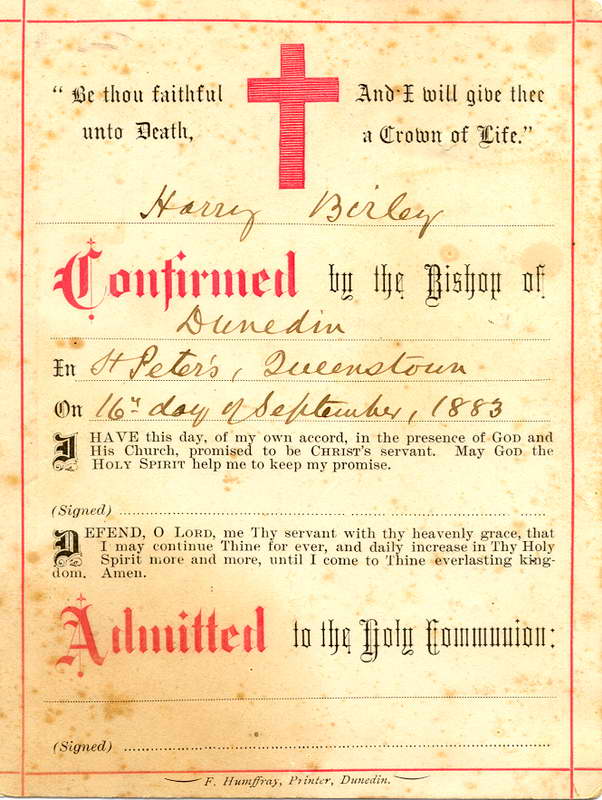 “ Be thou faithful And I will give thee
unto Death, a Crown of Life.”
Harry Birley
Confirmed by the Bishop of
Dunedin
In St Peter's, Queenstown
On 16th day of September, 1883
I HAVE this day, of my own accord, in the presence of GOD and
His Church, promised to be CHRIST'S servant. May GOD the
HOLY SPIRIT help me to keep my promise.
(Signed)
DEFEND, O LORD, me Thy servant with thy heavenly grace, that
I may continue Thine for ever, and daily increase in Thy Holy
Spirit more and more, until I come to Thine everlasting king-
dom. Amen.
Admitted to the Holy Communion:
(Signed)
F. Humffray, Printer, Dunedin.